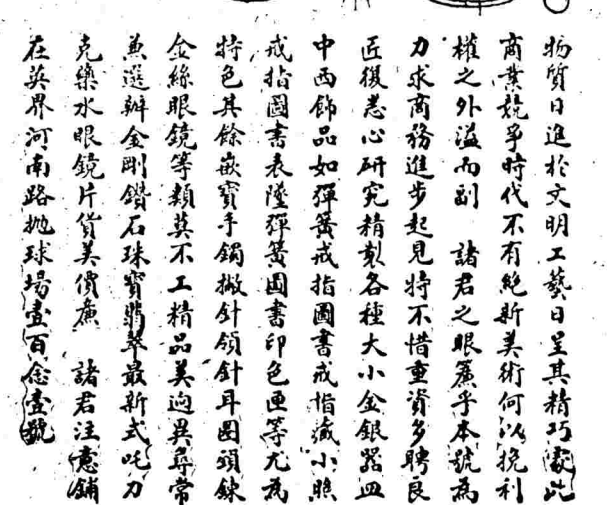 物質日進於文明工藝日呈其精巧處此
商業競爭時代不有絶新美術何以挽利
權之外溢而副　諸君之眼簾乎本號爲
力求商務進步起見特不惜重資多聘良
匠復悉心研究精製各種大小金銀器皿
中西飾品如彈簧戒指圖書戒指藏小照
戒指圖書表墜彈簧圖書印色匣等尤爲
特色其餘嵌寶手鐲撇針領針耳圈頭鍊
金絲眼鏡等類莫不工精品美逈異尋常
兼選辦金剛鑽石珠寶翡翠最新式叱刀
克藥水眼鏡片貨美價廉　諸君注意鋪
在英界河南路抛球場壹百念壹號